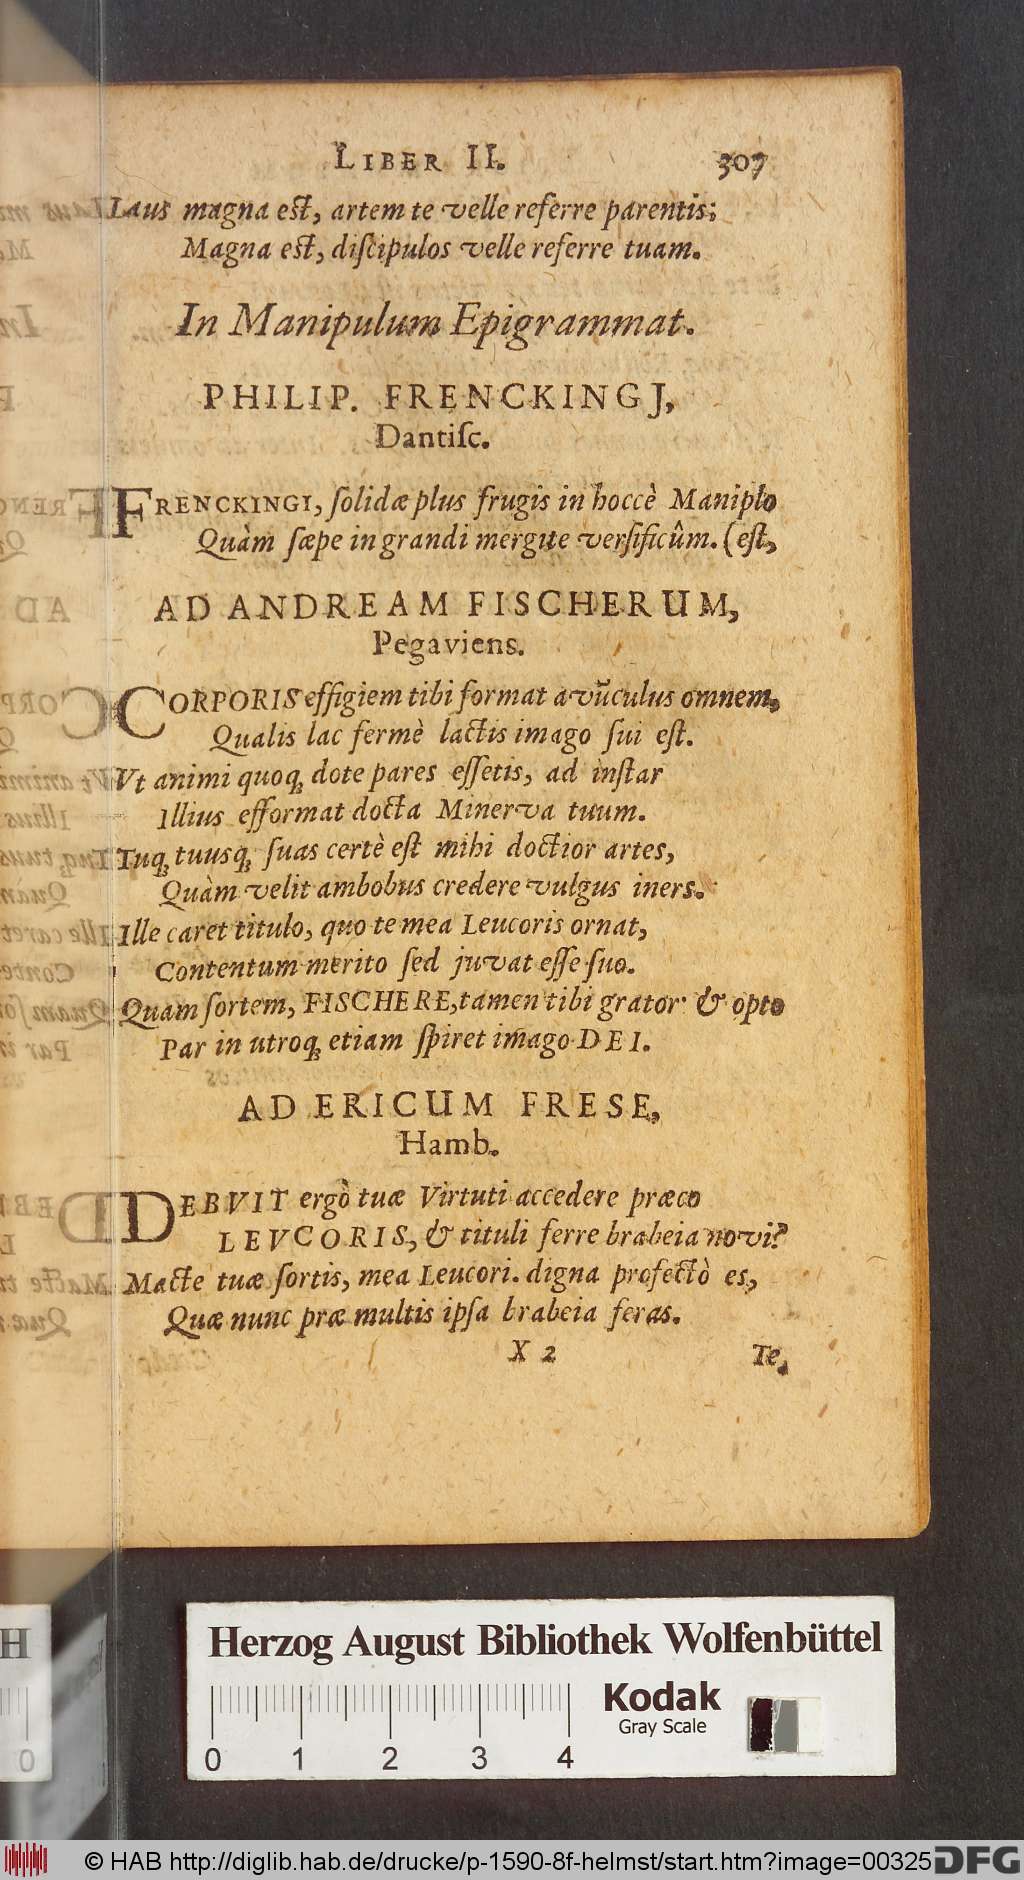 LIBER II. 307
Laus magna est, artem te velle referre parentis;
Magna est, diſcipulos velle referre tuam.
In Manipulum Epigrammat.
PHILIP. FRENCKINGJ,
Dantiſc.
FRENCKINGI, ſolidæ plus frugis in hoccè Maniplo
Quàm ſæpe in grandi mergite verſificûm. (eſt,
AD ANDREAM FISCHERUM,
Pegaviens.
CORPORIS effigiem tibi format avūculus omnem,
Qualis lac fermè lactis imago ſui eſt.
Vt animi quoq; dote pares eſſetis, ad inſtar
Illius efformat docta Minerva tuum.
Tuq; tuusq; ſuas certè eſt mihi doctior artes,
Quàm velit ambobus credere vulgus iners.
Ille caret titulo, quo te mea Leucoris ornat,
Contentum merito ſed juvat eſſe ſuo.
Quam ſortem, FISCHERE, tamen tibi grator & opto
Par in utroq; etiam ſpiret imago DEI.
AD ERICUM FRESE,
Hamb.
DEBVIT ergò tuæ Virtuti accedere præco
LEVCORIS, & tituli ferre brabeia novi?
Macte tuæ ſortis, mea Leucori. digna profectò es,
Quæ nunc præ multis ipſa brabeia feras.
X 2 Te,
Herzog August Bibliothek Wolfenbüttel
Kodak
Gray Scale
0 1 2 3 4
H
0
© HAB http://diglib.hab.de/drucke/p-1590-8f-helmst/start.htm?image=00325 DFG